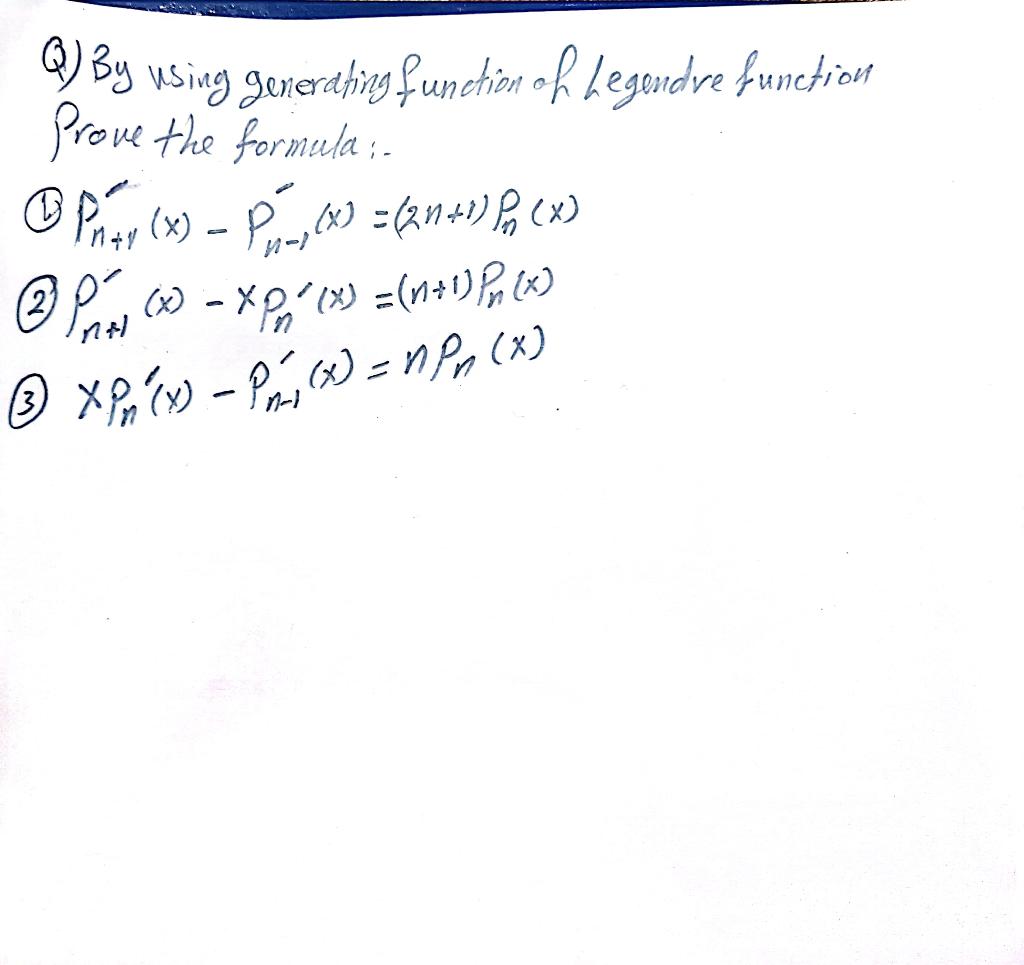 Q) By using generating function of Legendre function
Prove the formula :-
① P'n+1 (x) - P'n-1 (x) = (2n+1) Pn (x)
② P'n+1 (x) - x Pn' (x) = (n+1) Pn (x)
③ x Pn' (x) - P'n-1 (x) = n Pn (x)